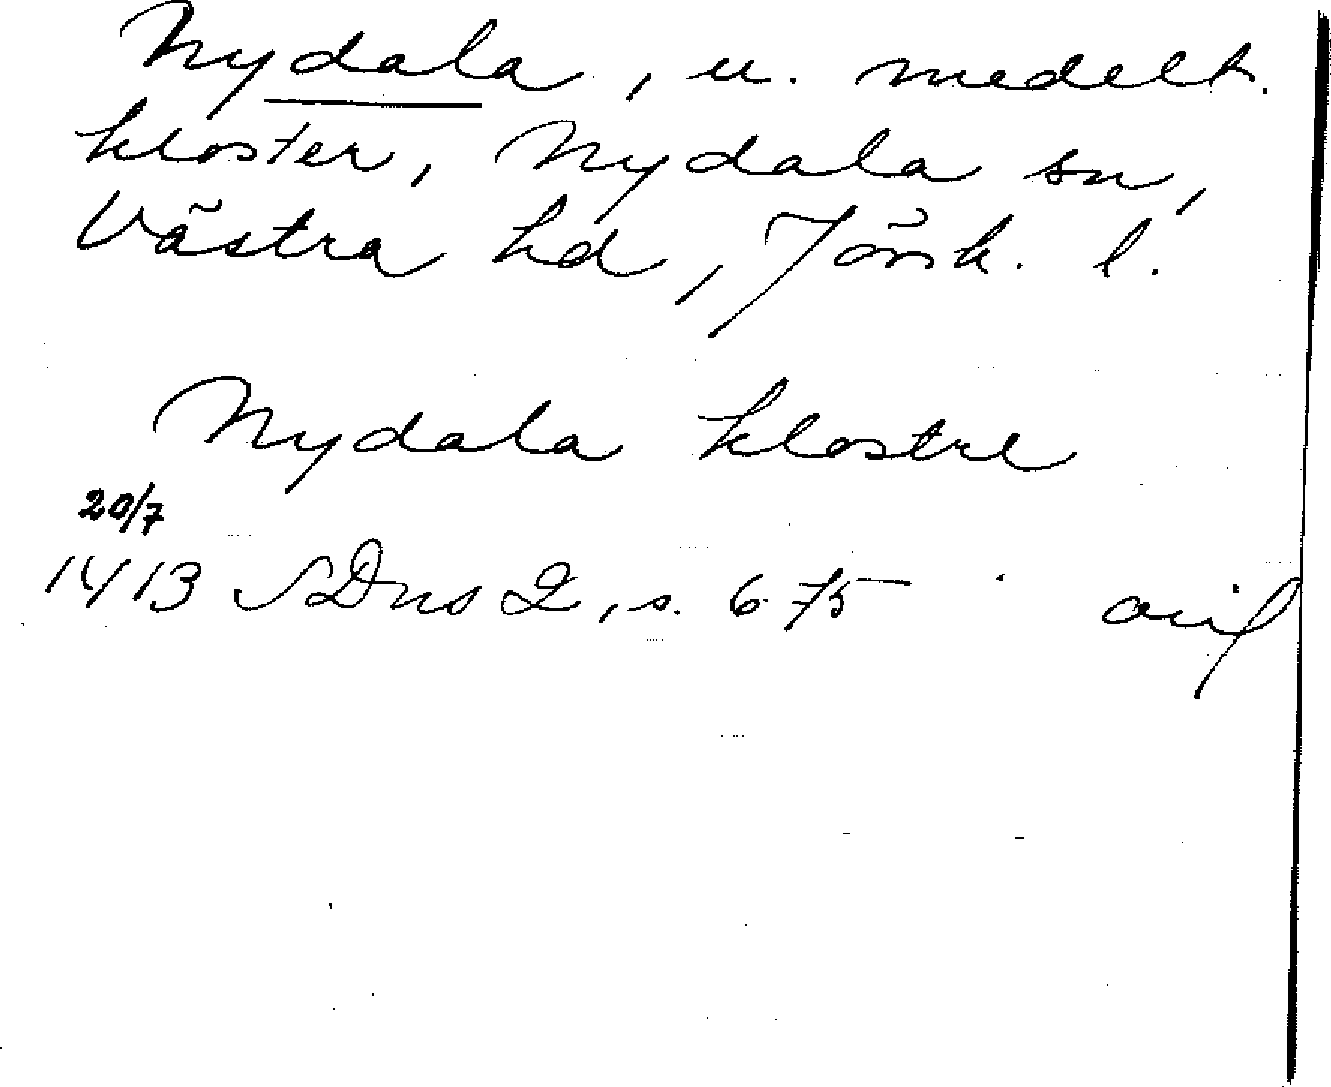 Nydala, u. medelt.
kloster, Nydala sn,
Västra hd, Jönk. l.
Nydala klostre
20/7
1413 SDns 2, s. 675 avs